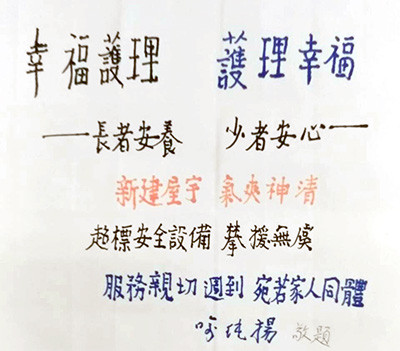 幸福護理 護理幸福
—長者安養 少者安心—
新建屋宇 氣爽神清
超標安全設備 擧援無虞
服務親切週到 宛若家人同體
喻純揚 敬題